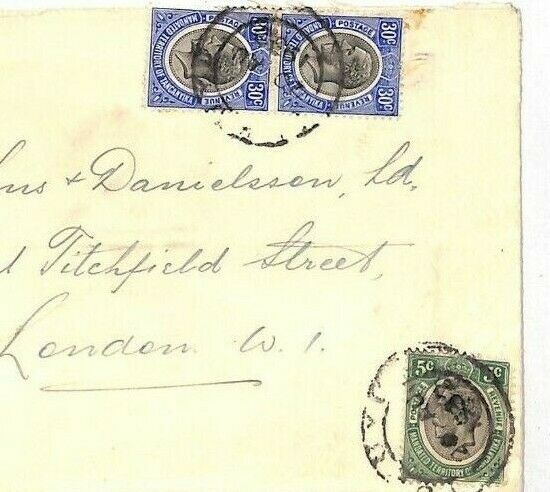 30c POSTAGE REVENUE MANDATED TERRITORY OF TANGANYIKA 30c
30c POSTAGE REVENUE MANDATED TERRITORY OF TANGANYIKA 30c
& Danielsson, Ld.
Titchfield Street,
London. W.1.
5c 5c
POSTAGE REVENUE
MANDATED TERRITORY OF TANGANYIKA